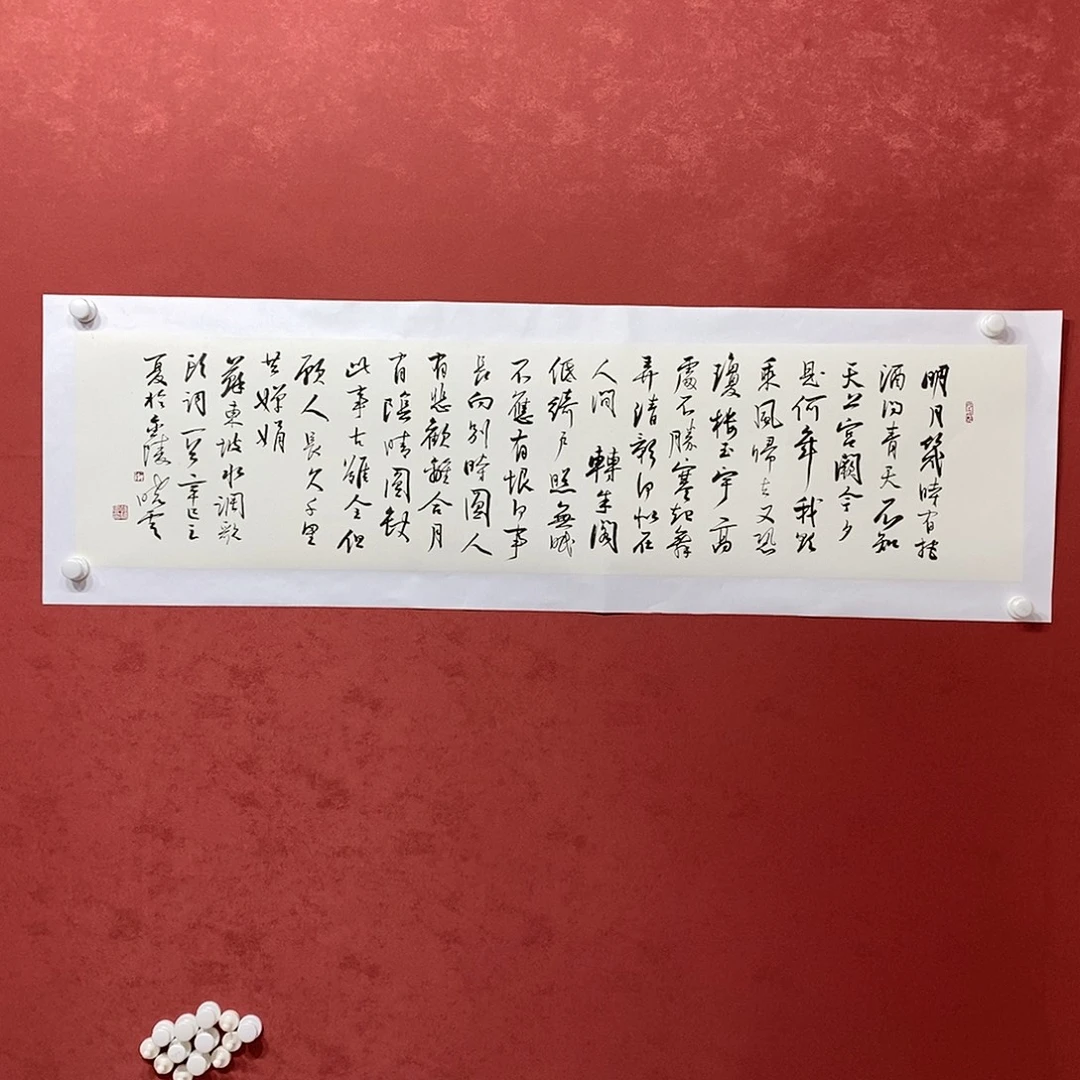 明月幾時有把
酒問青天不知
天上宮闕今夕
是何年我欲
乘風歸去又恐
瓊樓玉宇高
處不勝寒起舞
弄清影何似在
人間 轉朱閣
低綺戶照無眠
不應有恨何事
長向別時圓人
有悲歡離合月
有陰晴圓缺
此事古難全但
願人長久千里
共嬋娟
蘇東坡水調歌
頭詞一首辛丑之
夏於金陵 曉云